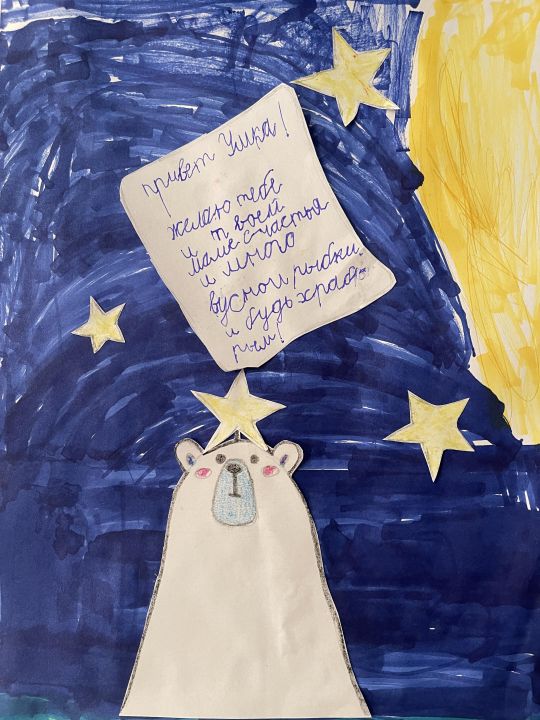 привет Умка!
желаю тебе
и твоей
маме счастья
и много
вусной рыбки.
и будь храб-
рым!